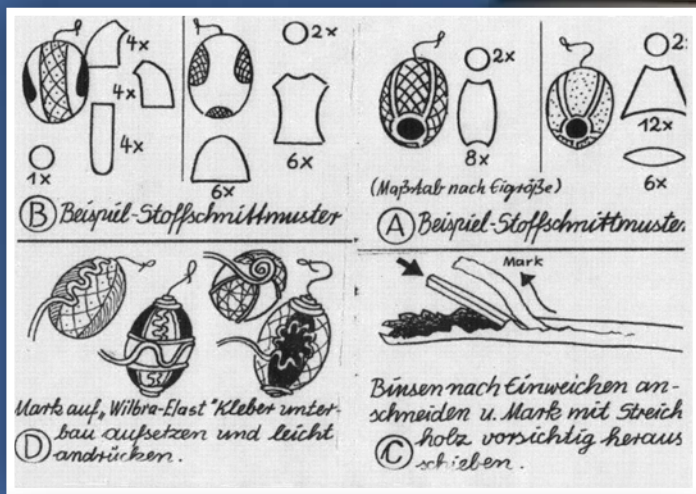 4x
4x
4x
1x
2x
6x
6x
B Beispiel-Stoffschnittmuster
2x
8x
2x
12x
6x
(Maßstab nach Eigröße)
A Beispiel-Stoffschnittmuster
Mark auf „Wilbra-Elast" Kleber unter-
bau aufsetzen und leicht
D andrücken.
Mark
Binsen nach Einweichen an-
schneiden u. Mark mit Streich
C holz vorsichtig heraus
schieben.